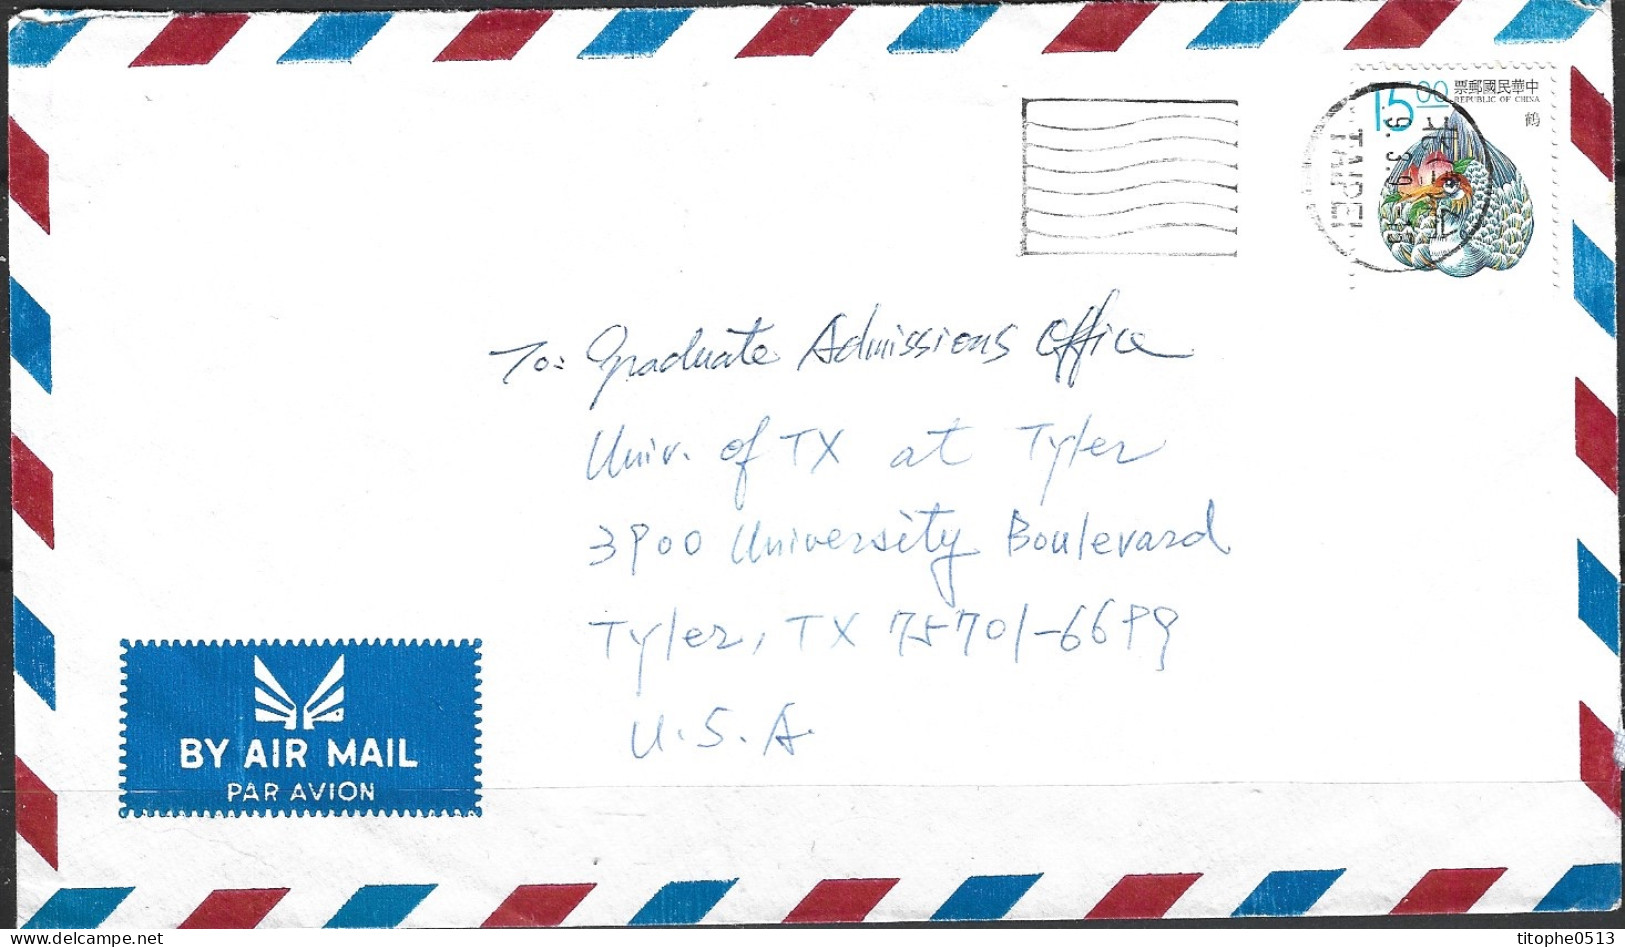 15.00 中華民國郵票
REPUBLIC OF CHINA
鶴
TAIPEI
To: Graduate Admissions Office
Univ. of TX at Tyler
3900 University Boulevard
Tyler, TX 75701-6699
U.S.A.
BY AIR MAIL
PAR AVION
titophe0513